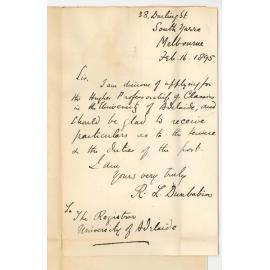 38. Darling St
South Yarra
Melbourne
Feb. 16. 1895
Sir,
I am desirous of applying for
the Hughes Professorship of Classics
in the University of Adelaide, and
should be glad to receive
particulars as to the tenure
& the duties of the post.
I am
Yours very truly
R. L Dunbabin
To
The Registrar
University of Adelaide